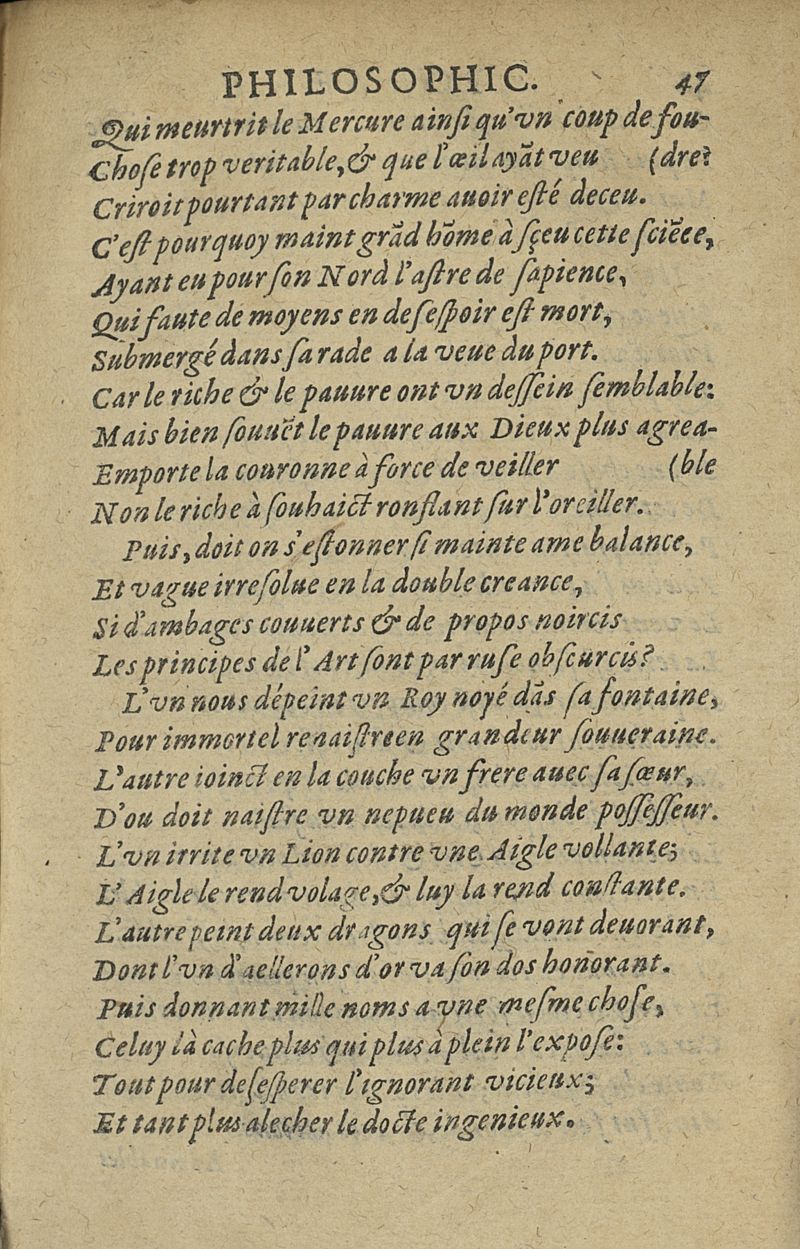 PHILOSOPHIC. 47
Qui meurtrit le Mercure ainſi qu'vn coup de fou-
Choſe trop veritable, & que l'œil ayãt veu (dre:
Criroit pourtant par charme auoir eſté deceu.
C'eſt pourquoy maint grãd hõme à ſçeu cette ſciẽce,
Ayant eu pour ſon Nord l'aſtre de ſapience,
Qui faute de moyens en deſeſpoir eſt mort,
Submergé dans ſa rade a la veue du port.
Car le riche & le pauure ont vn deſſein ſemblable:
Mais bien ſouuẽt le pauure aux Dieux plus agrea-
Emporte la couronne à force de veiller (ble
Non le riche à ſouhaict ronflant ſur l'oreiller.
Puis, doit on s'eſtonner ſi mainte ame balance,
Et vague irreſolue en la double creance,
Si d'ambages couuerts & de propos noircis
Les principes de l'Art ſont par ruſe obſcurcis?
L'vn nous dépeint vn Roy noyé dãs ſa fontaine,
Pour immortel renaiſtre en grandeur ſouueraine.
L'autre ioinct en la couche vn frere auec ſa ſœur,
D'ou doit naiſtre vn nepueu du monde poſſeſſeur.
L'vn irrite vn Lion contre vne Aigle vollante;
L'Aigle le rend volage, & luy la rend conſtante.
L'autre peint deux dragons qui ſe vont deuorant,
Dont l'vn d'aellerons d'or va ſon dos honorant.
Puis donnant mille noms a vne meſme choſe,
Celuy là cache plus qui plus à plein l'expoſe:
Tout pour deſeſperer l'ignorant vicieux;
Et tant plus alecher le docte ingenieux.